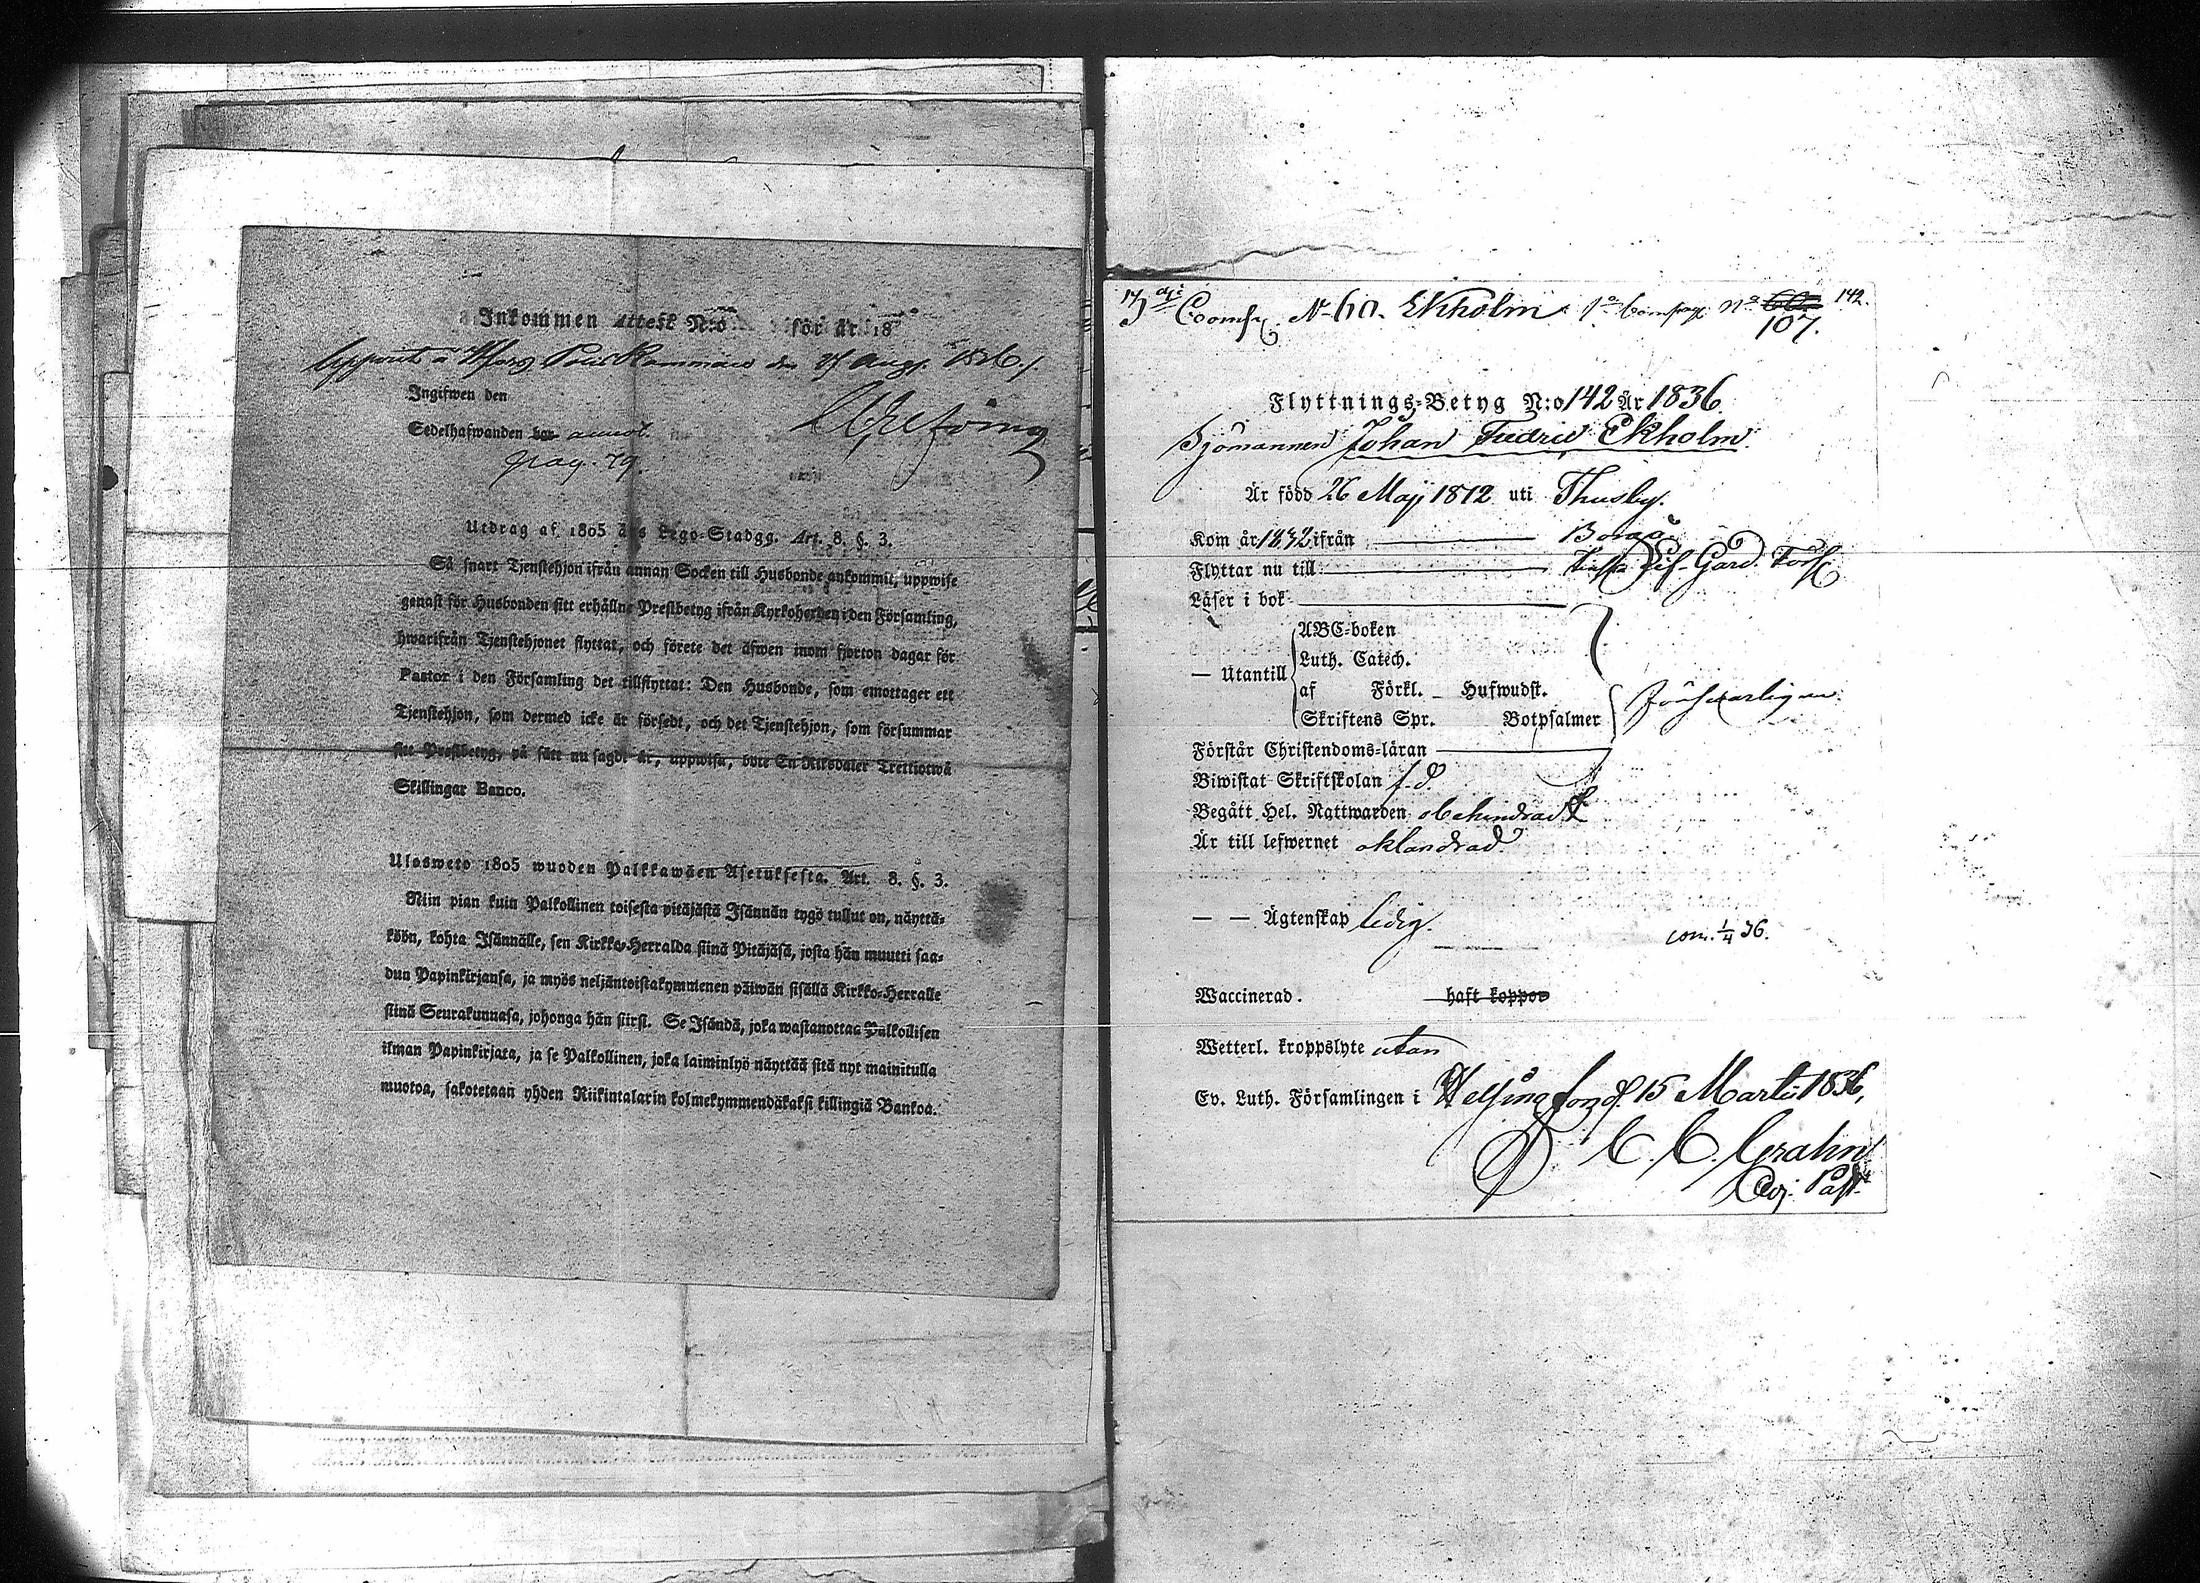 Inkommen Attest N:o för år 18
Uppvist å H:fors Polis Kammare den 27 Aug. 1836.
Ingifwen den
Sedelhafwanden har annot.
pag. 79.
Utdrag af 1805 års Lego-Stadgg. Art. 8. §. 3.
Så snart Tjenstehjon ifrån annan Socken till Husbonde ankommit, uppwise
genast för Husbonden sitt erhållne Prestbetyg ifrån Kyrkoherden i den Församling,
hwarifrån Tjenstehjonet flyttat, och förete det äfwen inom fjorton dagar för
Pastor i den Församling det tillflyttat: Den Husbonde, som emottager ett
Tjenstehjon, som dermed icke är försedt, och det Tjenstehjon, som försummar
sitt Prestbetyg, på sätt nu sagdt är, uppwisa, böte En Riksdaler Trettiotwå
Skillingar Banco.
Ulosweto 1805 wuoden Palkkawäen Asetuksesta. Art. 8. §. 3.
Niin pian kuin Palkollinen toisesta pitäjästä Isännän tygö tullut on, näyttä-
köön, kohta Isännälle, sen Kirkko-Herralda siinä Pitäjäsä, josta hän muutti saa-
dun Papinkirjansa, ja myös neljäntoistakymmenen päiwän sisällä Kirkko-Herralle
siinä Seurakunnasa, johonga hän siirsi. Se Isändä, joka wastanottaa Palkollisen
ilman Papinkirjata, ja se Palkollinen, joka laiminlyö näyttää sitä nyt mainitulla
muotoa, sakotetaan yhden Riikintalarin kolmekymmendäkaksi killingiä Bankoa.
N 60. Ekholm 1a Compag. No 142.
107.
Flyttnings-Betyg N:o 142 År 1836
Sjömannen Johan Fredric Ekholm
Är född 26 Maji 1812 uti Thusby.
Kom år 1832 ifrån Borgå
Flyttar nu till Lif-Gard. Förs
Läser i bok
— Utantill
ABC-boken
Luth. Catech.
af Förkl. — Hufwudst.
Skriftens Spr. Botpsalmer
försvarligen
Förstår Christendoms-läran
Biwistat Skriftskolan f. d.
Begått Hel. Nattwarden obehindradt
Är till lefwernet oklandrad
— — Ägtenskap ledig.
com. 1/4 36.
Waccinerad. haft koppor
Wetterl. kroppslyte utan
Ev. Luth. Församlingen i Helsingfors d. 15 Martii 1836,
C. C. Crahn
Adj. Past.